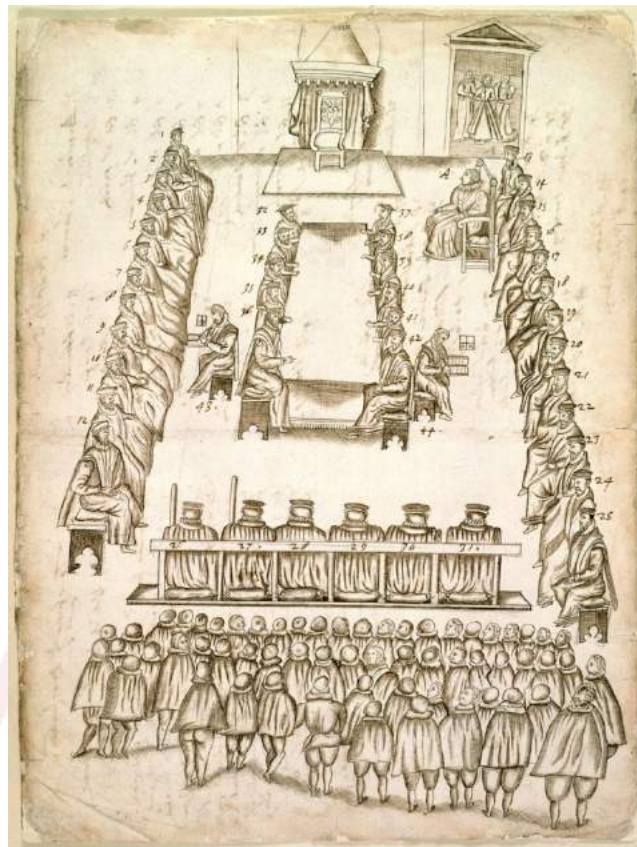 1
2
3
4
5
6
7
8
9
10
11
12
A
13
14
15
16
17
18
19
20
21
22
23
24
25
32
33
34
35
36
37
38
39
40
41
42
43.
44.
27. 28 29 30 31.